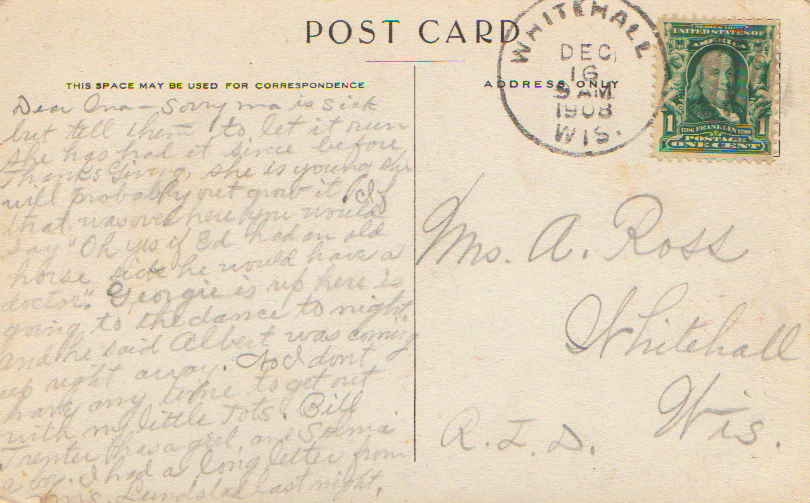 POST CARD
THIS SPACE MAY BE USED FOR CORRESPONDENCE
ADDRESS ONLY
WHITEHALL
DEC
16
9 AM
1908
WIS.
UNITED STATES OF
AMERICA
1 1
FRANKLIN
POSTAGE
ONE CENT
Dear Ona – Sorry ma is sick
but tell them to let it run
she has had it since before
Thanksgiving, she is young she
will probably out grow it. If
that was over here you would
say "Oh yes if Ed had an old
horse sick he would have a
doctor". Georgie is up here is
going to the dance to night
and he said Albert was coming
up right away. I don't
have any time to get out
with my little tots. Bill
Trenter has a girl and
a boy. I had a long letter from
last night.
Mrs. A. Ross
Whitehall
Wis.
R.F.D.